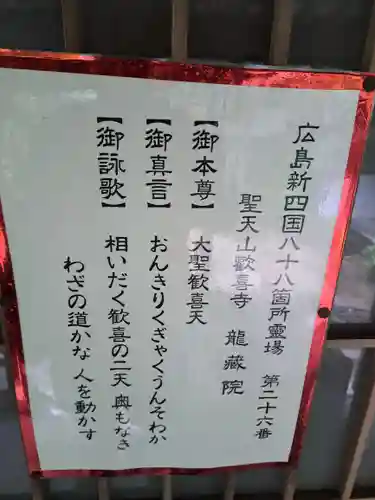 広島新四国八十八箇所霊場 第二十六番
聖天山歓喜寺 龍蔵院
【御本尊】 大聖歓喜天
【御真言】 おんきりくぎゃくうんそわか
【御詠歌】 相いだく歓喜の二天 奥もなき
わざの道かな 人を動かす